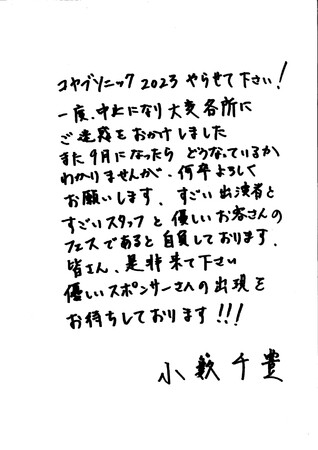 コヤブソニック2023やらせて下さい!
一度、中止になり大変各所に
ご迷惑をおかけしました
また9月になったらどうなっているか
わかりませんが、何卒よろしく
お願いします、すごい出演者と
すごいスタッフと優しいお客さんの
フェスであると自負しております、
皆さん、是非来て下さい
優しいスポンサーさんへの出現を
お待ちしております!!!
小籔千豊